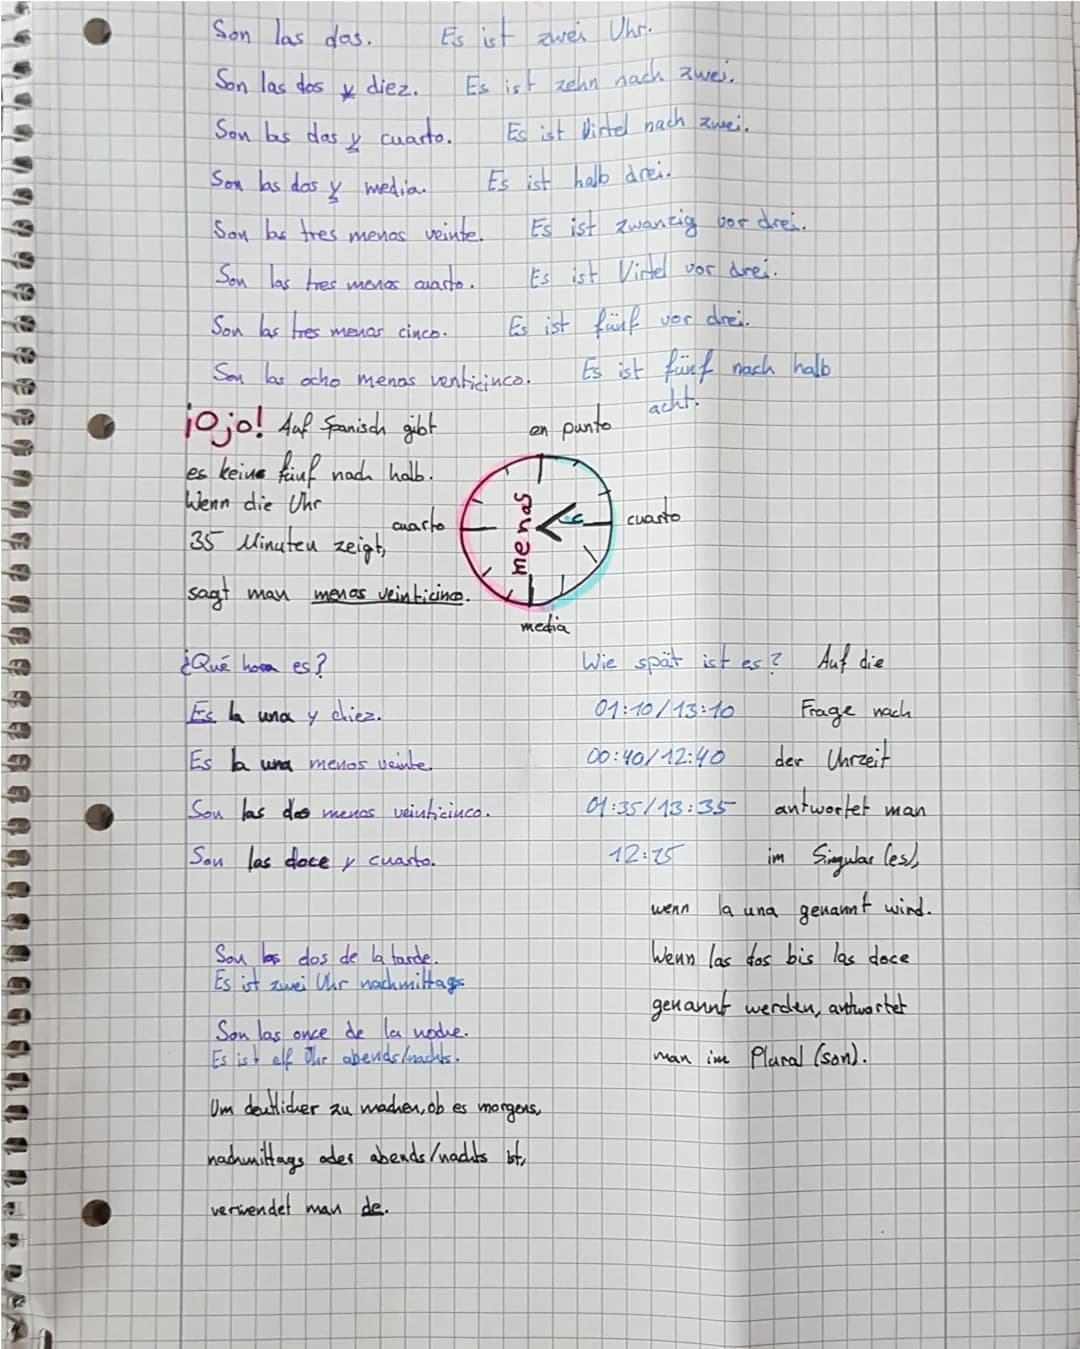 Son las dos. Es ist zwei Uhr.
Son las dos y diez. Es ist zehn nach zwei.
Son las dos y cuarto. Es ist Virtel nach zwei.
Son las dos y media. Es ist halb drei.
Son las tres menos veinte. Es ist zwanzig vor drei.
Son las tres menos cuarto. Es ist Virtel vor drei.
Son las tres menos cinco. Es ist fünf vor drei.
Son las ocho menos venticinco. Es ist fünf nach halb
acht.
¡Ojo! Auf Spanisch gibt
es keine fünf nach halb.
Wenn die Uhr
35 Minuten zeigt,
sagt man menos veinticinco.
en punto
cuarto
menos
y
cuarto
media
¿Qué hora es? Wie spät ist es? Auf die
Es la una y diez. 01:10/13:10 Frage nach
Es la una menos veinte. 00:40/12:40 der Uhrzeit
Son las dos menos veinticinco. 01:35/13:35 antwortet man
Son las doce y cuarto. 12:15 im Singular (es),
wenn la una genannt wird.
Son las dos de la tarde. Wenn las dos bis las doce
Es ist zwei Uhr nachmittags
genannt werden, antwortet
Son las once de la noche.
Es ist elf Uhr abends/nachts. man im Plural (son).
Um deutlicher zu machen, ob es morgens,
nachmittags oder abends/nachts ist,
verwendet man de.